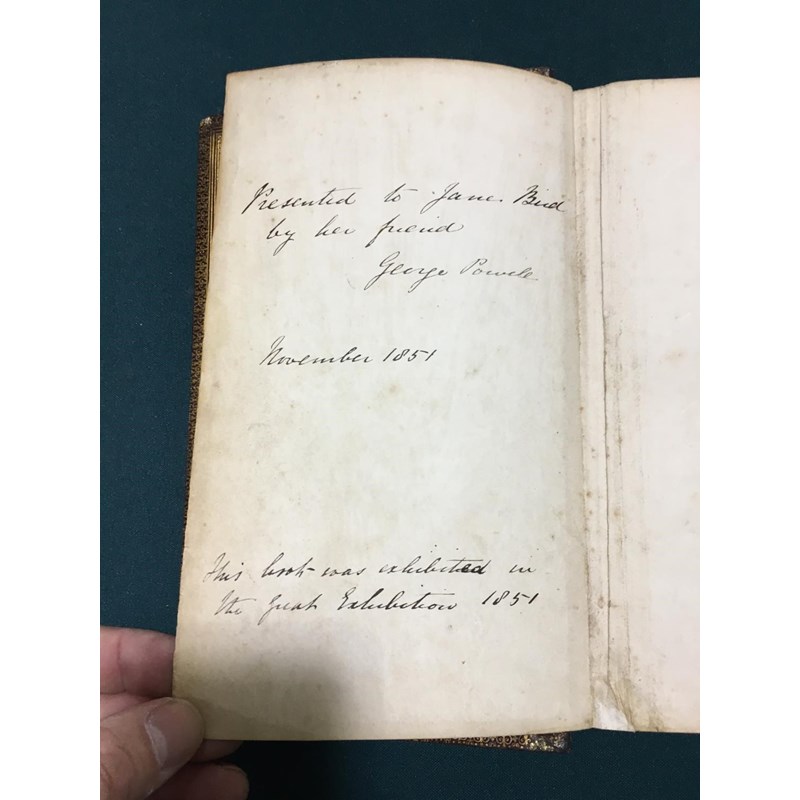 Presented to Jane Bird
by her friend
George Powell
November 1851
This book was exhibited in
the Great Exhibition 1851